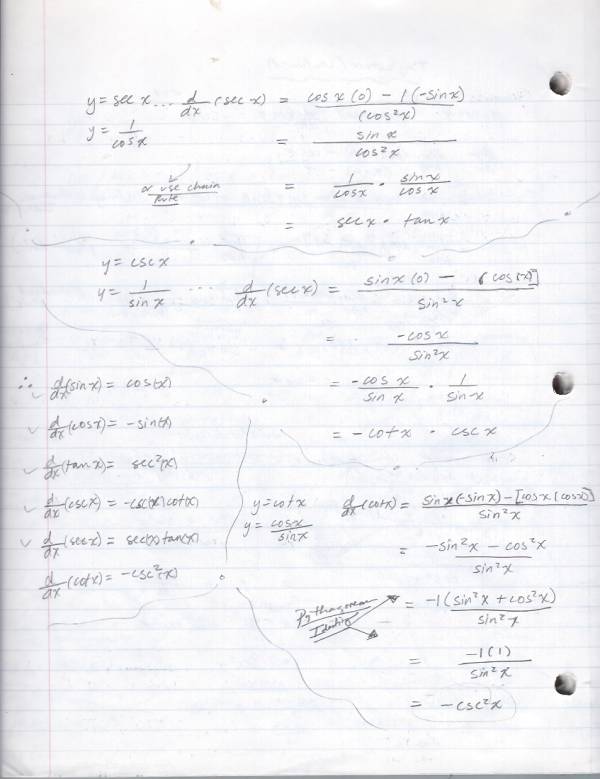 y = sec x ... d/dx (sec x) = cos x (0) - 1 (-sin x) / (cos²x)
y = 1/cos x = sin x / cos²x
or use chain Rule = 1/cos x · sin x / cos x
= sec x · tan x
y = csc x
y = 1/sin x ... d/dx (sec x) = sin x (0) - (cos(x)] / sin²x
= -cos x / sin²x
= -cos x / sin x · 1/sin x
= -cot x · csc x
∴ d/dx (sin x) = cos(x)
d/dx (cos x) = -sin(x)
d/dx (tan x) = sec²(x)
d/dx (csc x) = -csc(x) cot(x)
d/dx (sec x) = sec(x) tan(x)
d/dx (cot x) = -csc²(x)
y = cot x
y = cos x / sin x
d/dx (cot x) = sin x (-sin x) - [cos x (cos x)] / sin²x
= -sin²x - cos²x / sin²x
Pythagorean Identity
= -1 (sin²x + cos²x) / sin²x
= -1(1) / sin²x
= -csc²x